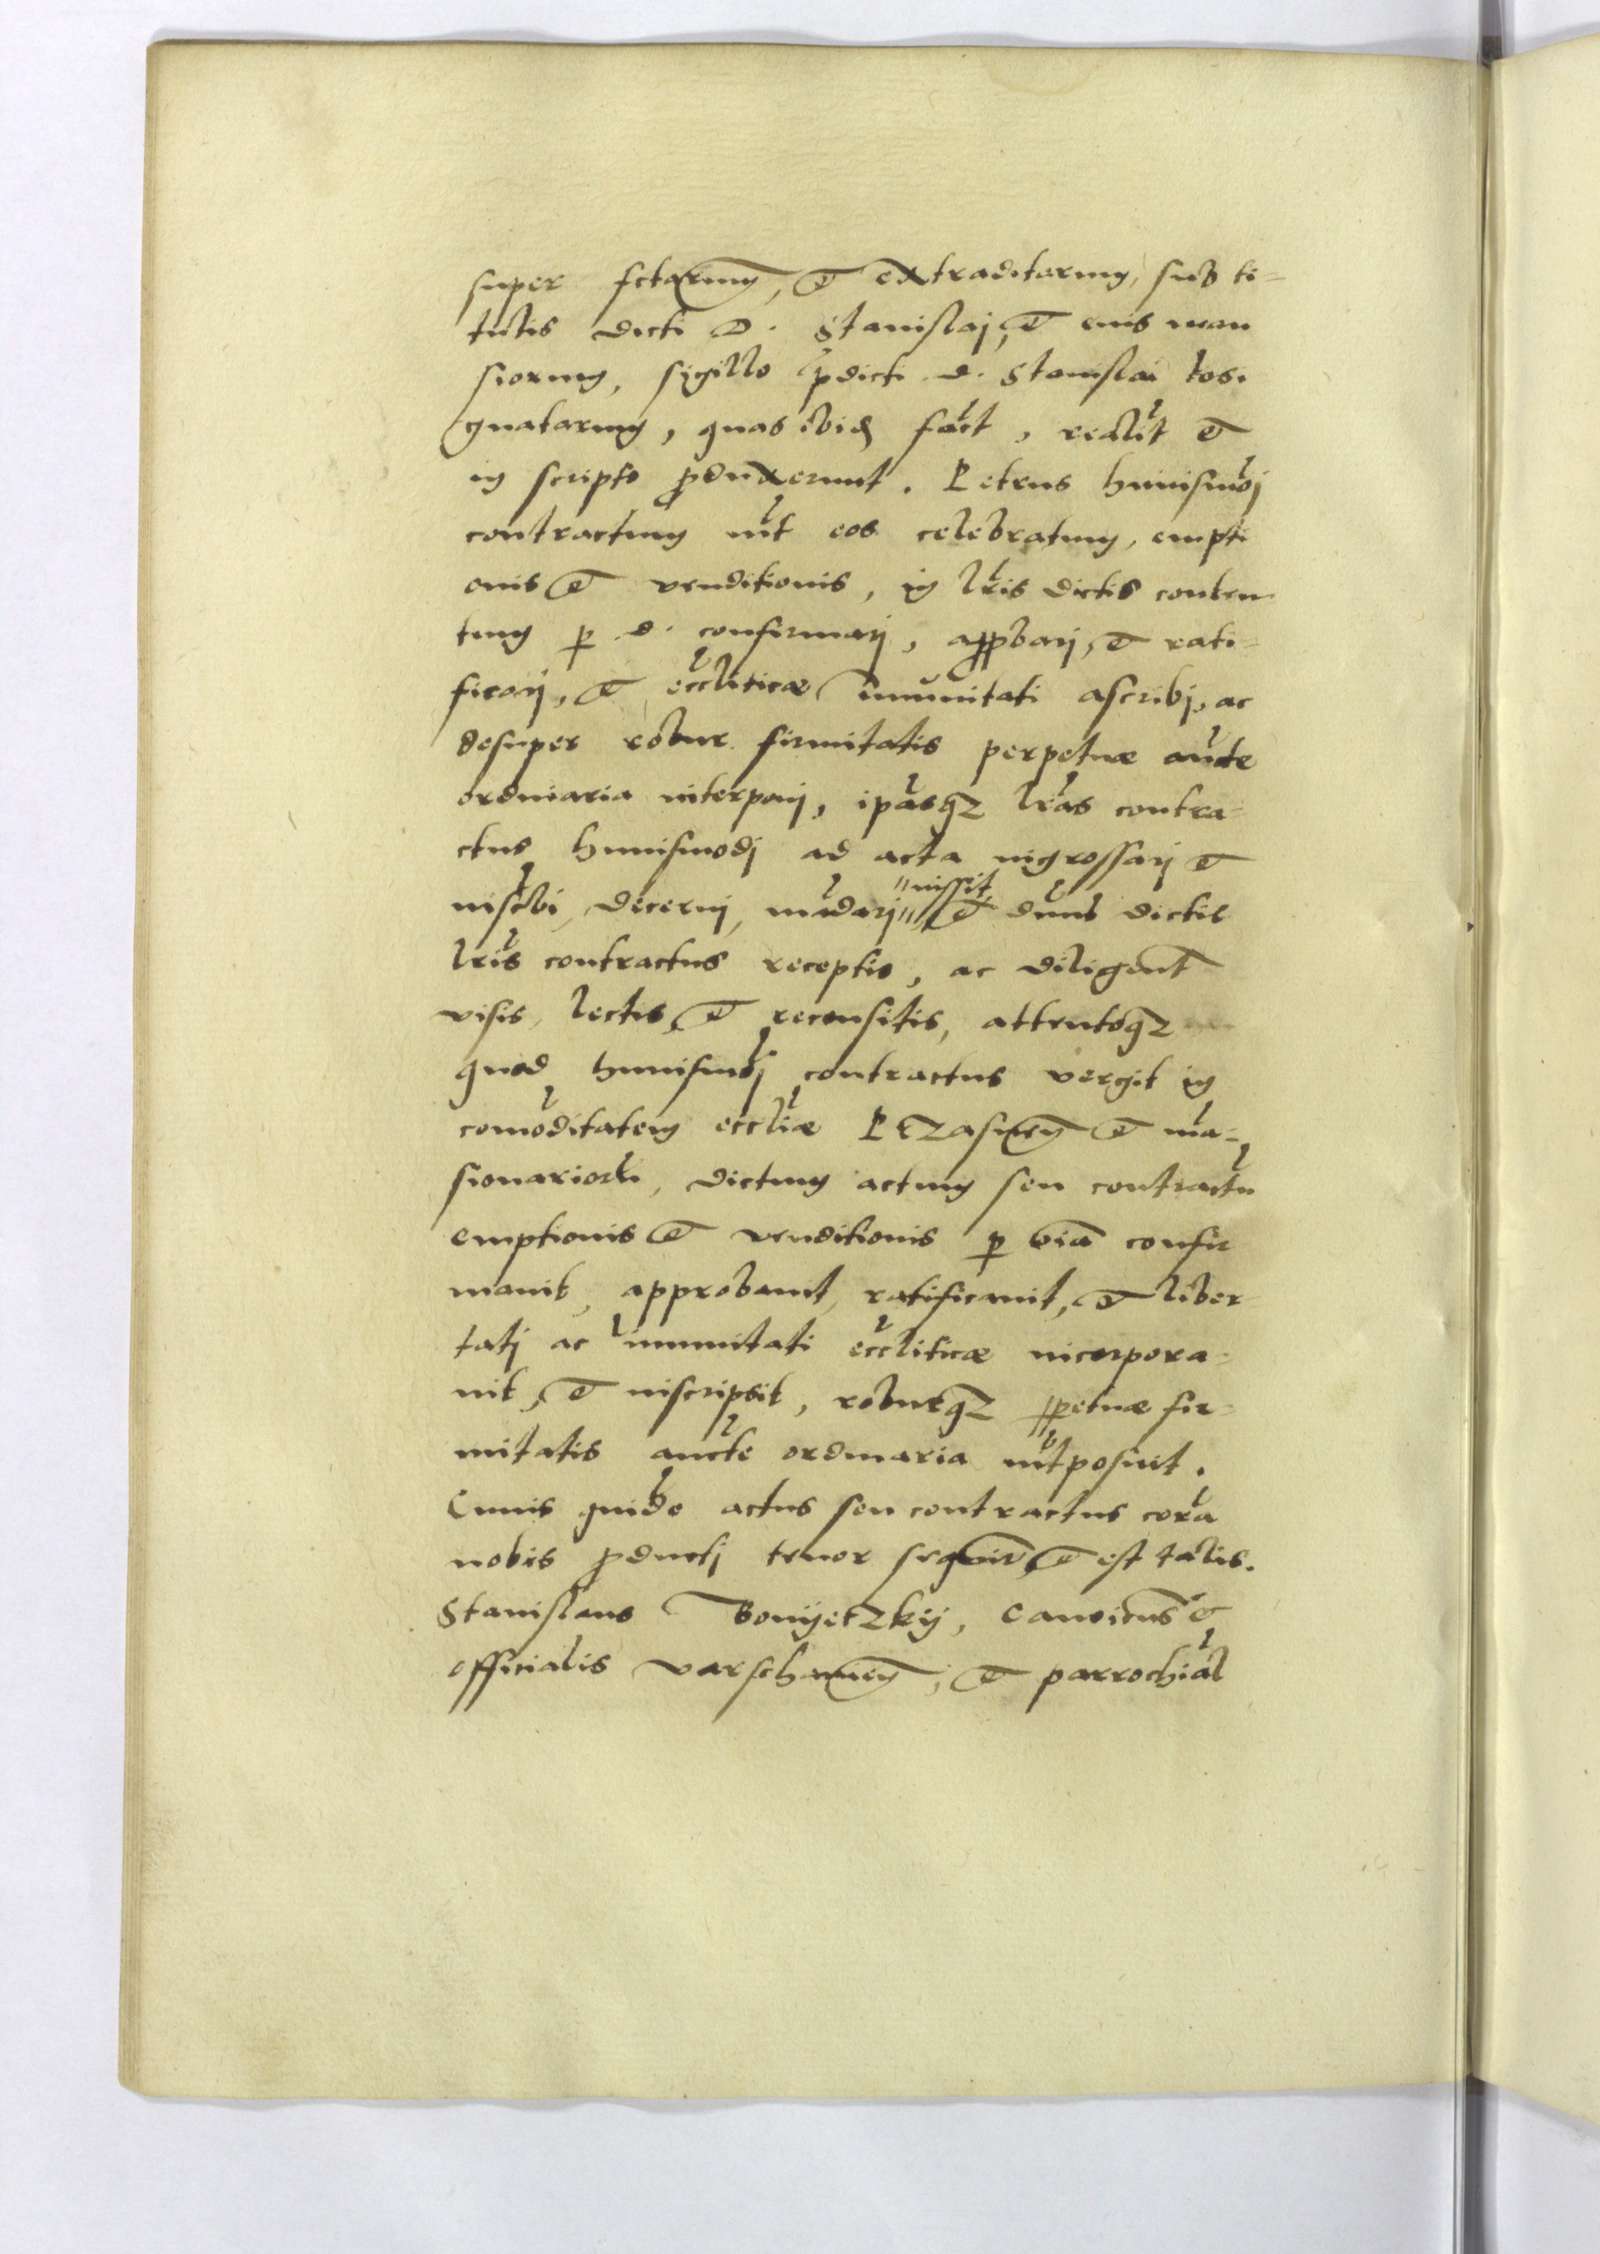 super fctarum, et extraditarum, sub ti-
tulis dicti D. Stanislaj, et eius man
siorum, sigillo pdicti d. Stanislai
gnatarum, quas ibid fact, realit et
in scripto pduxerunt. Petens huiusmoj
contractum int eos celebratum, empti
onis et venditionis, in lris dictis conten
tum p d. confirmarj, appbarj, et rati-
ficarj, et eccliticæ imunitati ascribj, ac
desuper robur firmitatis perpetuæ aucte
ordinaria interponj, ipasqz lras contra-
ctus huiusmodj ad acta ingrossarj et
inscbi decernj, madarj "missit" et dnus dictis
lris contractus receptis, ac diligent
visis, lectis, et recensitis, attentoqz
quod huiusmoj contractus vergit in
comoditatem eccliæ et ma-
sionarior, dictum actum seu contractu
emptionis et venditionis p oia confir
mauit, approbauit, ratificauit, et liber-
tatj ac imunitati eccliticæ incorpora-
uit, et inscripsit, roburqz ppetuæ fir-
mitatis aucte ordinaria intposuit.
Cuius quide actus seu contractus cora
nobis pductj tenor sequir et est talis.
Stanislaus Bonyetzkij, Canoicus et
officialis Varschauien, et parrochial